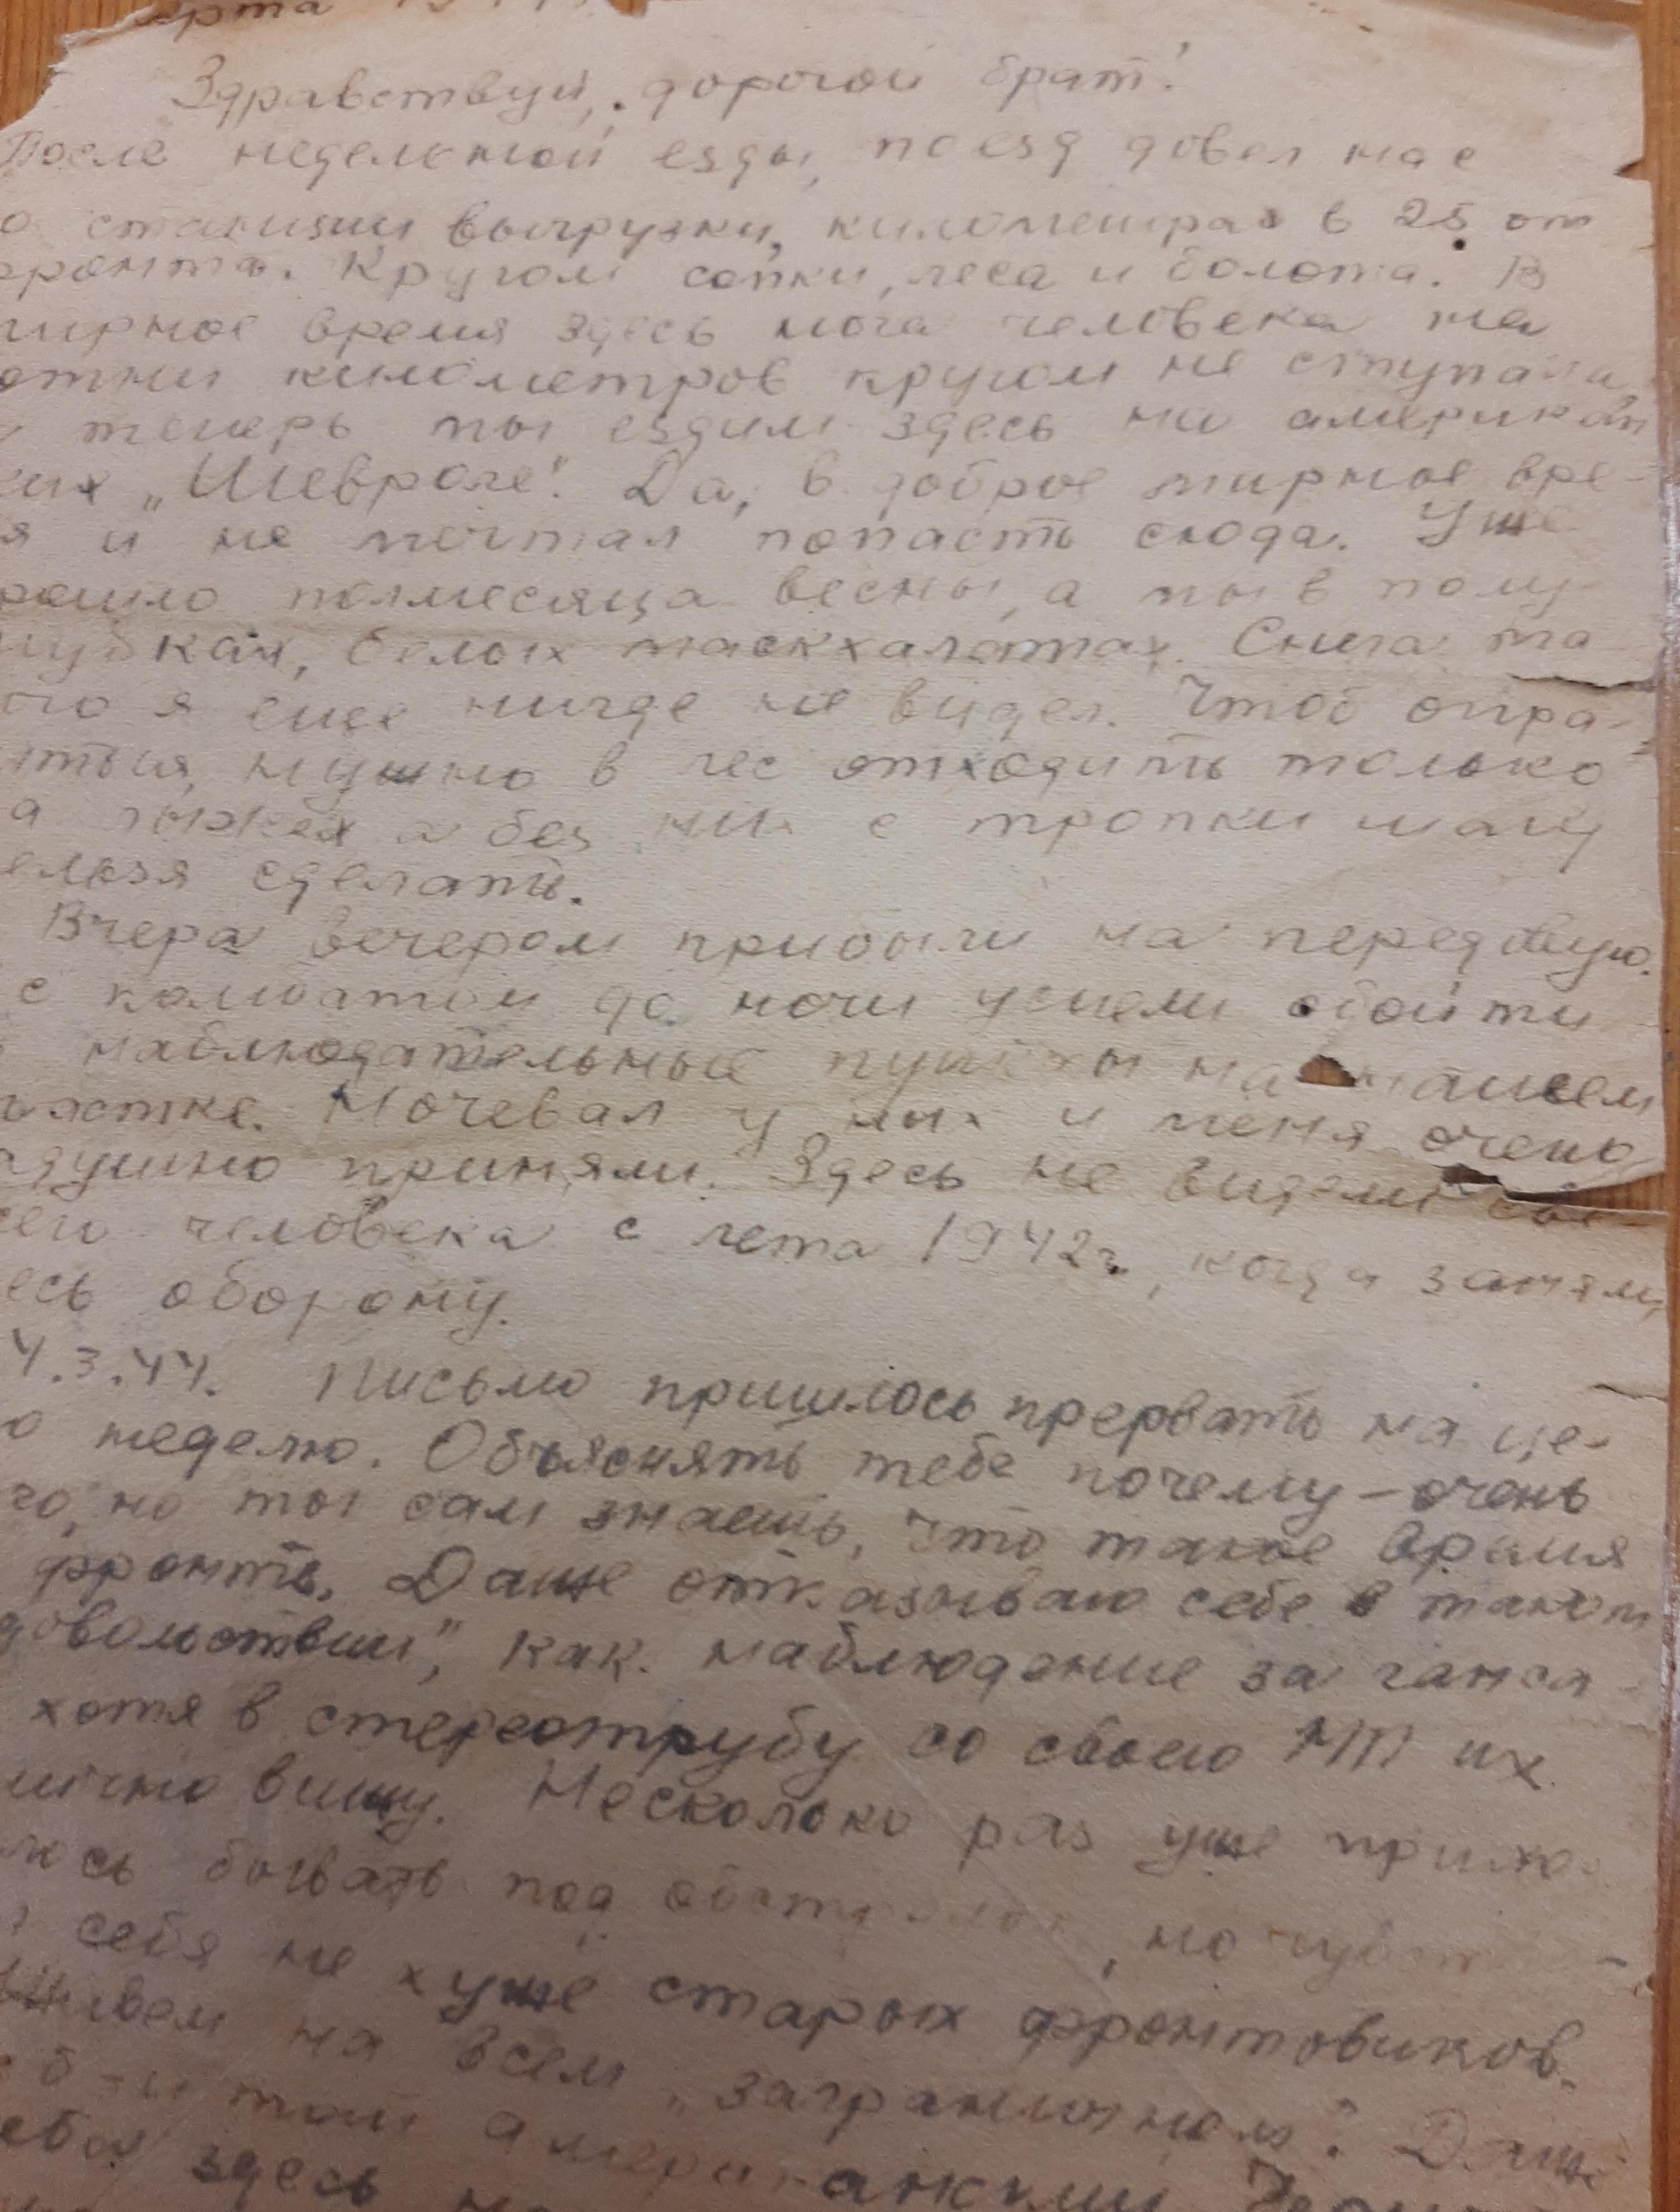 рта 194
Здравствуй, дорогой брат!
После недельной езды, поезд довел нас
о станции выгрузки, километрах в 25 от
фронта. Кругом сопки, леса и болота. В
мирное время здесь нога человека на
отни километров кругом не ступала,
а теперь мы ездим здесь на американ
ких „Шевроле". Да, в доброе мирное вре-
я и не мечтал попасть сюда. Уже
рошло полмесяца весны, а мы в полу-
шубках, белых маскхалатах. Снега та
ого я еще нигде не видел. Чтоб опра-
иться, нужно в лес отходить только
а лыжах а без них с тропки шагу
ельзя сделать.
Вчера вечером прибыли на передовую.
с комбатом до ночи успели обойти
наблюдательные пункты на нашем
частке. Ночевал у них и меня очень
адушно приняли. Здесь не видели све-
его человека с лета 1942 г., когда заняли
есь оборону.
4.3.44. Письмо пришлось прервать на це-
ю неделю. Объяснять тебе почему – очень
го, но ты сам знаешь, что такое время
фронте. Даже отказываю себе в таком
довольствии", как наблюдение за ганса-
хотя в стереотрубу со своего НП их
лично вижу. Несколько раз уже прихо-
лось бывать под обстрелом, но чувств
себя не хуже старых фронтовиков.
живем на всем „заграничном". Даже
американский
здесь